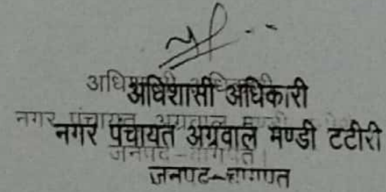 अधिशासी अधिकारी
नगर पंचायत अग्रवाल मण्डी टटीरी
जनपद-बागपत